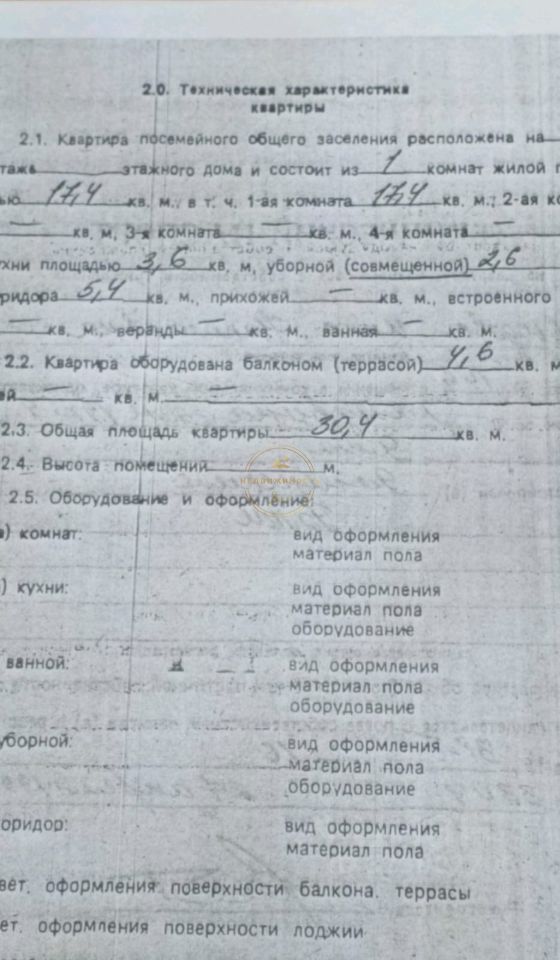 2.0. Техническая характеристика
квартиры
2.1. Квартира посемейного общего заселения расположена на
этажного дома и состоит из 1 комнат жилой
17,4 кв. м., в т. ч. 1-ая комната 17,4 кв. м.; 2-ая
— кв. м, 3-я комната — кв. м., 4-я комната —
площадью 3,6 кв. м, уборной (совмещенной) 2,6
5,4 кв. м., прихожей — кв. м., встроенного
— кв. м., веранды — кв. м., ванная — кв. м.
2.2. Квартира оборудована балконом (террасой) 4,6 кв. м
— кв. м. —
2.3. Общая площадь квартиры 30,4 кв. м.
2.4. Высота помещений м.
недвижимость
2.5. Оборудование и оформление:
) комнат: вид оформления
материал пола
) кухни: вид оформления
материал пола
оборудование
ванной: вид оформления
материал пола
оборудование
уборной: вид оформления
материал пола
оборудование
оридор: вид оформления
материал пола
вет. оформления поверхности балкона, террасы
ет. оформления поверхности лоджии